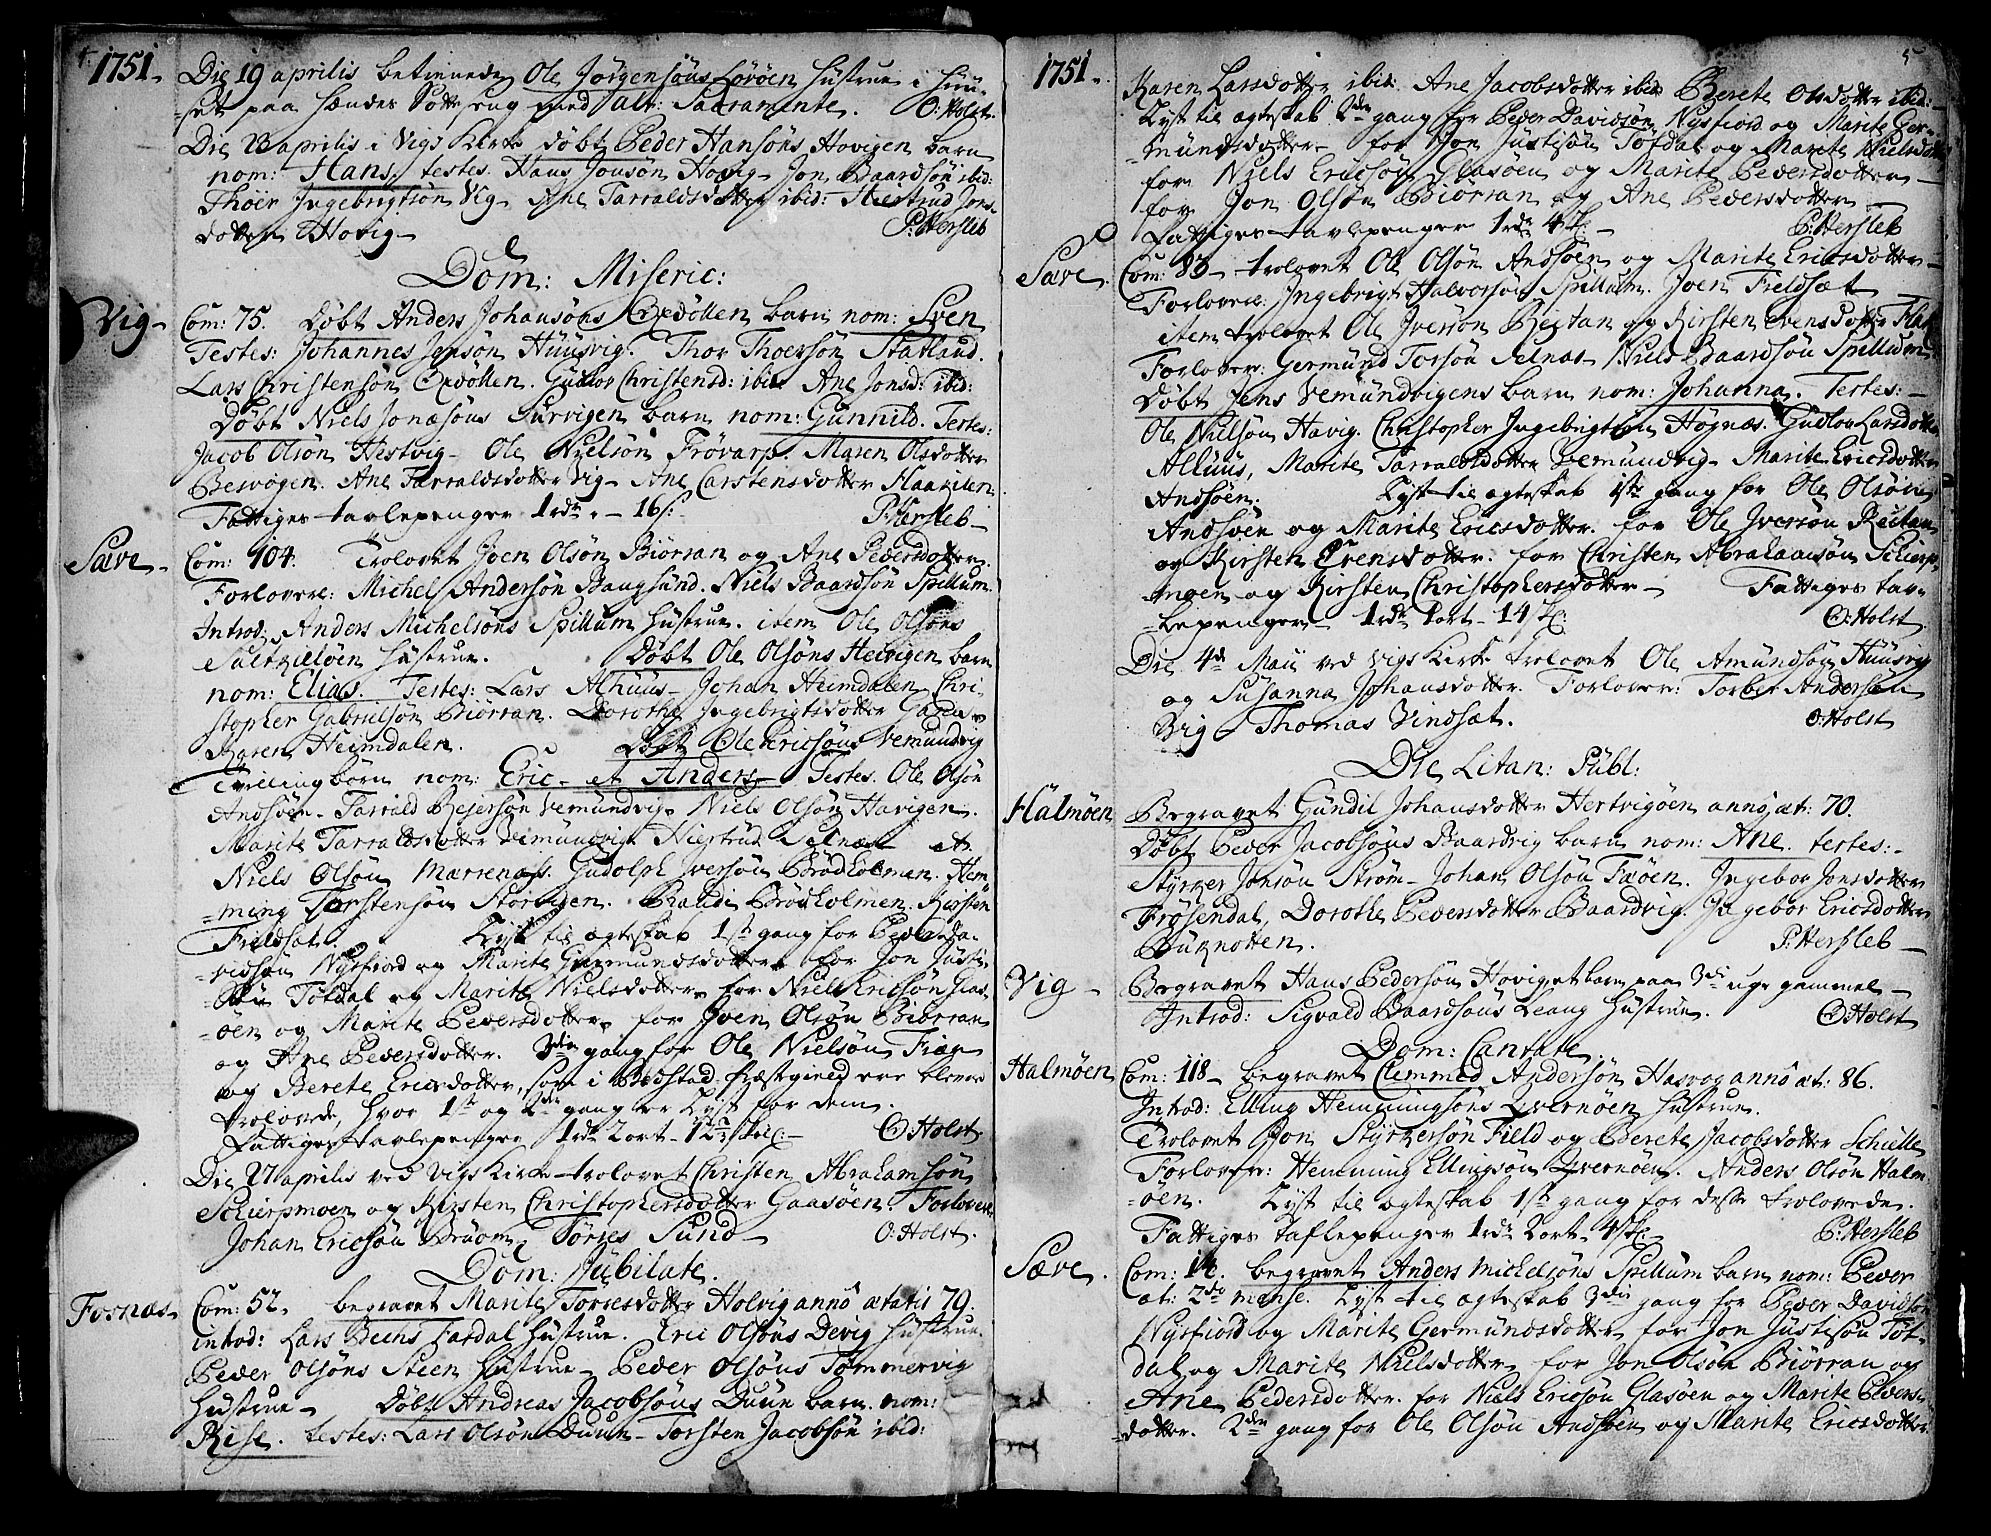 4. 1751.
Die 19 aprilis betiennede Ole Jørgensøns Lørøen hustrue i huu-
set paa hendes Sotteseng med alt: Sacramente. O: Holst.
Die aprilis i Vigs Kirke døbt Peder Hansøns Hovigen barn
nom: Hans. testes. Hans Jonsøn Hovig - Jon Baardsøn ibid:
Thoer Ingebrigtsøn Vig - Ane Tarraldsdotter ibid: Jons-
dotter Hovig - P: Hersleb
Dom: Miseric:
Vig - Com: 75. Døbt Anders Johansøns Opdøllen barn nom: Sven
Testes: Johannes Jonsøn Huusvig. Thor Thoersøn Statland.
Lars Christensøn Opdøllen. Gudlov Christensd: ibid: Ane Jonsd: ibid:
Døbt Niels Jonæsøns Survigen barn nom: Gunnild. Testes:
Jacob Olsøn Hestvig - Ole Nielsøn Frøvarp. Maren Olsdotter
Besvogen. Ane Tarraldsdotter Vig - Ane Carstensdotter
Fattiges tavlepenger 1 rdr. - 16 s: P: Hersleb -
Sæve - Com: 104. Trolovet Joen Olsøn Biörran og Ane Pedersdotter.
Forlovere: Michel Andersøn Baugsund. Niels Baardsøn Spillum.
Introd: Anders Michelsøns Spillum hustrue. item Ole Olsøns
hustrue. Døbt Ole Olsøns barn
nom: Elias. Testes: Lars Alhuus - Johan Heimdalen Chri-
stopher Gabrielsøn Biörran. Dorothe Ingebrigtsdotter
Karen Heimdalen. Døbt Ole Ericsøns Vemundvig
Tvillingbörn nom: Eric - et Anders - Testes. Ole Olsøn
Andsøen - Tarrald Vemundvig - Niels Olsøn Havigen.
Marite Tarraldsdotter Vemundvig Selnæs et
Niels Olsøn Gudolph Iversøn Brödholmen. Hem-
ming Torstensøn Storvigen. Brödholmen. Kirsten
Fieldsæt. Lyst til ægteskab 1ste gang for Peder Da-
vidsøn Nysfiord og Marite Germundsdotter for Jon Justi-
søn Tøtdal og Marite Nielsdotter for Niels Ericsøn Glas-
øen og Marite Pedersdotter for Joen Olsøn Biörran
og Ane Pedersdotter. 3die gang for Ole Nielsøn
og Berete Ericsdotter, som i Præstgield ere blevne
trolovde, hvor 1ste og 2den gang er Lyst for dem.
Fattiges tavlepenger 1 rdr 2 ort - 12 skil: O: Holst
Die aprilis ved Vigs Kirke trolovet Christen Abrahamsøn
Schierpmoen og Kirsten Christophersdotter Gaasøen. Forlovere:
Johan Ericsøn Sund - O: Holst.
Dom: Jubilate.
Fosnæs - Com: 52. begravet Marite Torresdotter Holvig anno ætatis 79.
introd: Lars Bechs Fardal hustrue. Eric Olsøns Devig hustrue.
Peder Olsøns Steen hustrue - Peder Olsøns Tømmervig
hustrue - Døbt Andreas Jacobsøns Duun barn nom:
testes: Lars Olsøn Duun - Torsten Jacobsøn ibid:
1751. 5
Karen Larsdotter ibid: Ane Jacobsdotter ibid: Berete Olsdotter ibid: -
Lyst til ægteskab 2den gang for Peder Davidsøn Nysfiord og Marite Ger-
mundsdotter - for Jon Justisøn Tøtdal og Marite Nielsdotter
for Niels Ericsøn Glasøen og Marite Pedersdotter -
for Jon Olsøn Biörran og Ane Pedersdotter -
Fattiges tavlepenger 1 rdr 4 s: - P: Hersleb
Sæve. Com: 83 - trolovet Ole Olsøn Andsøen og Marite Ericsdotter -
Forlovere: Ingebrigt Halvorsøn Spillum. Joen Fieldsæt
item trolovet Ole Iversøn Reitan og Kirsten Evensdotter
Forlovere: Germund Torsøn Selnæs Niels Baardsøn Spillum
Døbt Jens Vemundvigens barn nom: Johanna. Testes: -
Ole Nielsøn Havig. Christopher Ingebrigtsøn Høgnæs. Gudlou Larsdotter
Alhuus, Marite Tarraldsdotter Vemundvig - Marite Ericsdotter
Andsøen. Lyst til ægteskab 1ste gang for Ole Olsøn
Andsøen og Marite Ericsdotter. for Ole Iversøn Reitan
og Kirsten Evensdotter. for Christen Abrahamsøn Schierp-
moen og Kirsten Christophersdotter - Fattiges tav-
lepenger - 1 rdr 1 ort - 14 s: O: Holst
Die 4de Maii ved Vigs Kirke trolovet Ole Amundsøn Huusvig
og Susanna Johansdotter. Forlovere: Torber Andersøn
Vig - Thomas Vindsæt. O: Holst
Die Litan: Publ:
Halmøen Begravet Gundil Johansdotter Hertvigøen anno æt: 70.
Døbt Peder Jacobsøns Baardvig barn nom: Ane. testes: -
Styrker Jonsøn Strøm - Johan Olsøn Ingebor Jonsdotter
Frøsendal, Dorothe Pedersdotter Baardvig. Ingebor Ericsdotter
P: Hersleb -
Vig - Begravet Hans Pedersøn Hovig, et barn paa 3die uge gammel -
Introd: Sigvald Baardsøns Leang hustrue. O: Holst
Dom: Cantate
Halmøen Com: 118 - begravet Clemmed Andersøn Hasvog anno æt: 86.
Introd: Elling Hemmingsøns Qvernøen hustrue.
Trolovet Jon Styrkersøn Field og Berete Jacobsdotter
Forlovere: Hemming Ellingsøn Qvernøen. Anders Olsøn Halm-
øen. Lyst til ægteskab 1ste gang for desse trolovede.
Fattiges taflepenger 1 rdr 2 ort - 4 s: - P: Hersleb
Sæve. Com: begravet Anders Michelsøns Spillum barn nom: Peder
æt: 2de mense. Lyst til ægteskab 3die gang for Peder Davidsøn
Nysfiord og Marite Germundsdotter for Jon Justisøn Tøt-
dal og Marite Nielsdotter for Jon Olsøn Biörran og
Ane Pedersdotter. for Niels Ericsøn Glasøen og Marite Peders-
dotter. 2den gang for Ole Olsøn Andsøen og Marite Ericsdotter